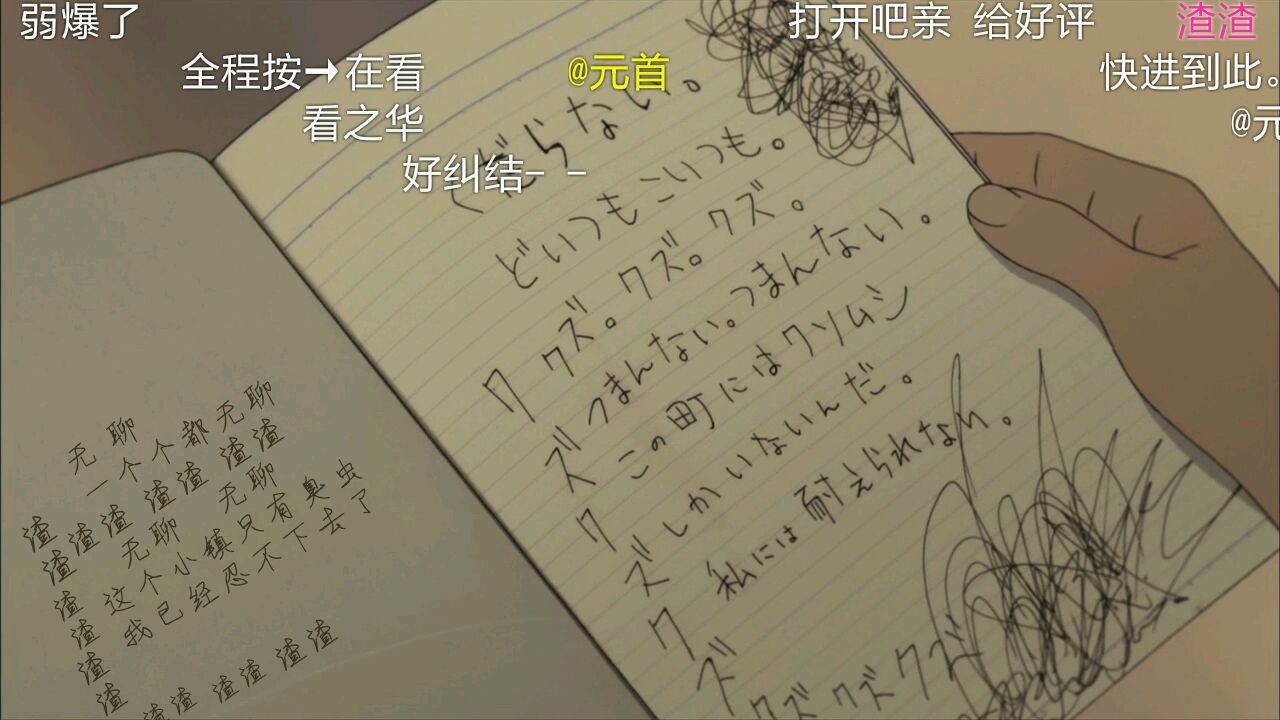 弱爆了
打开吧亲 给好评
渣渣
全程按➡在看
@元首
快进到此。
看之华
@元
好纠结- -
くだらない。
どいつもこいつも。
クズ。クズ。クズ。
つまんない。つまんない。
この町にはクソムシ
しかいないんだ。
私には耐えられない。
クズクズクズ
クズクズクズ
无聊
一个个都无聊
渣渣渣 渣渣 渣渣
无聊 无聊
这个小镇只有臭虫
我已经忍不下去了
渣渣渣渣渣渣
渣渣 渣渣 渣渣